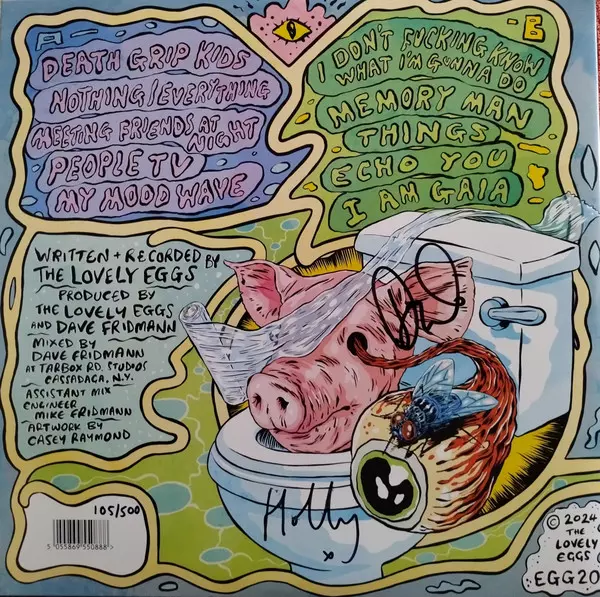 A
DEATH GRIP KIDS
NOTHING/EVERYTHING
MEETING FRIENDS AT
NIGHT
PEOPLE TV
MY MOOD WAVE
B
I DON'T FUCKING KNOW
WHAT I'M GUNNA DO
MEMORY MAN
THINGS
ECHO YOU
I AM GAIA
WRITTEN + RECORDED BY
THE LOVELY EGGS
PRODUCED BY
THE LOVELY EGGS
AND DAVE FRIDMANN
MIXED BY
DAVE FRIDMANN
AT TARBOX RD. STUDIOS
CASSADAGA, N.Y.
ASSISTANT MIX
ENGINEER
MIKE FRIDMANN
ARTWORK BY
CASEY RAYMOND
Holly
x
105/500
5 055869 550888 >
© 2024
THE
LOVELY
EGGS
EGG20